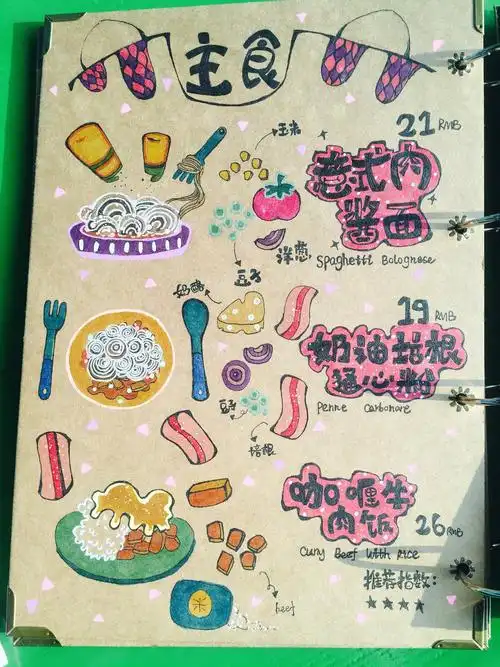 主食
21 RMB
玉米
意式肉
酱面
洋葱
Spaghetti Bolognose
豆子
奶酪
19 RMB
奶油培根
通心粉
豆子
Penne Carbonare
培根
咖喱牛
肉饭
26 RMB
Curry Beef With Rice
推荐指数:
★★★★
beef
米